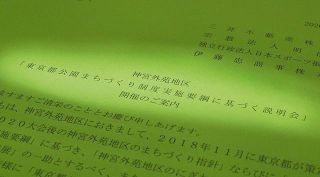 三井不動産株
宗教法人明
独立行政法人日本スポーツ振
伊藤忠商事株
神宮外苑地区
「東京都公園まちづくり制度実施要綱に基づく説明会」
開催のご案内
ますますご清栄のこととお慶び申しあげます。
は、神宮外苑地区におきまして、2018年11月に東京都が策
020大会後の神宮外苑地区のまちづくり指針」ならびに
施要綱」に基づき、「神宮外苑地区
」の一助とするべく、